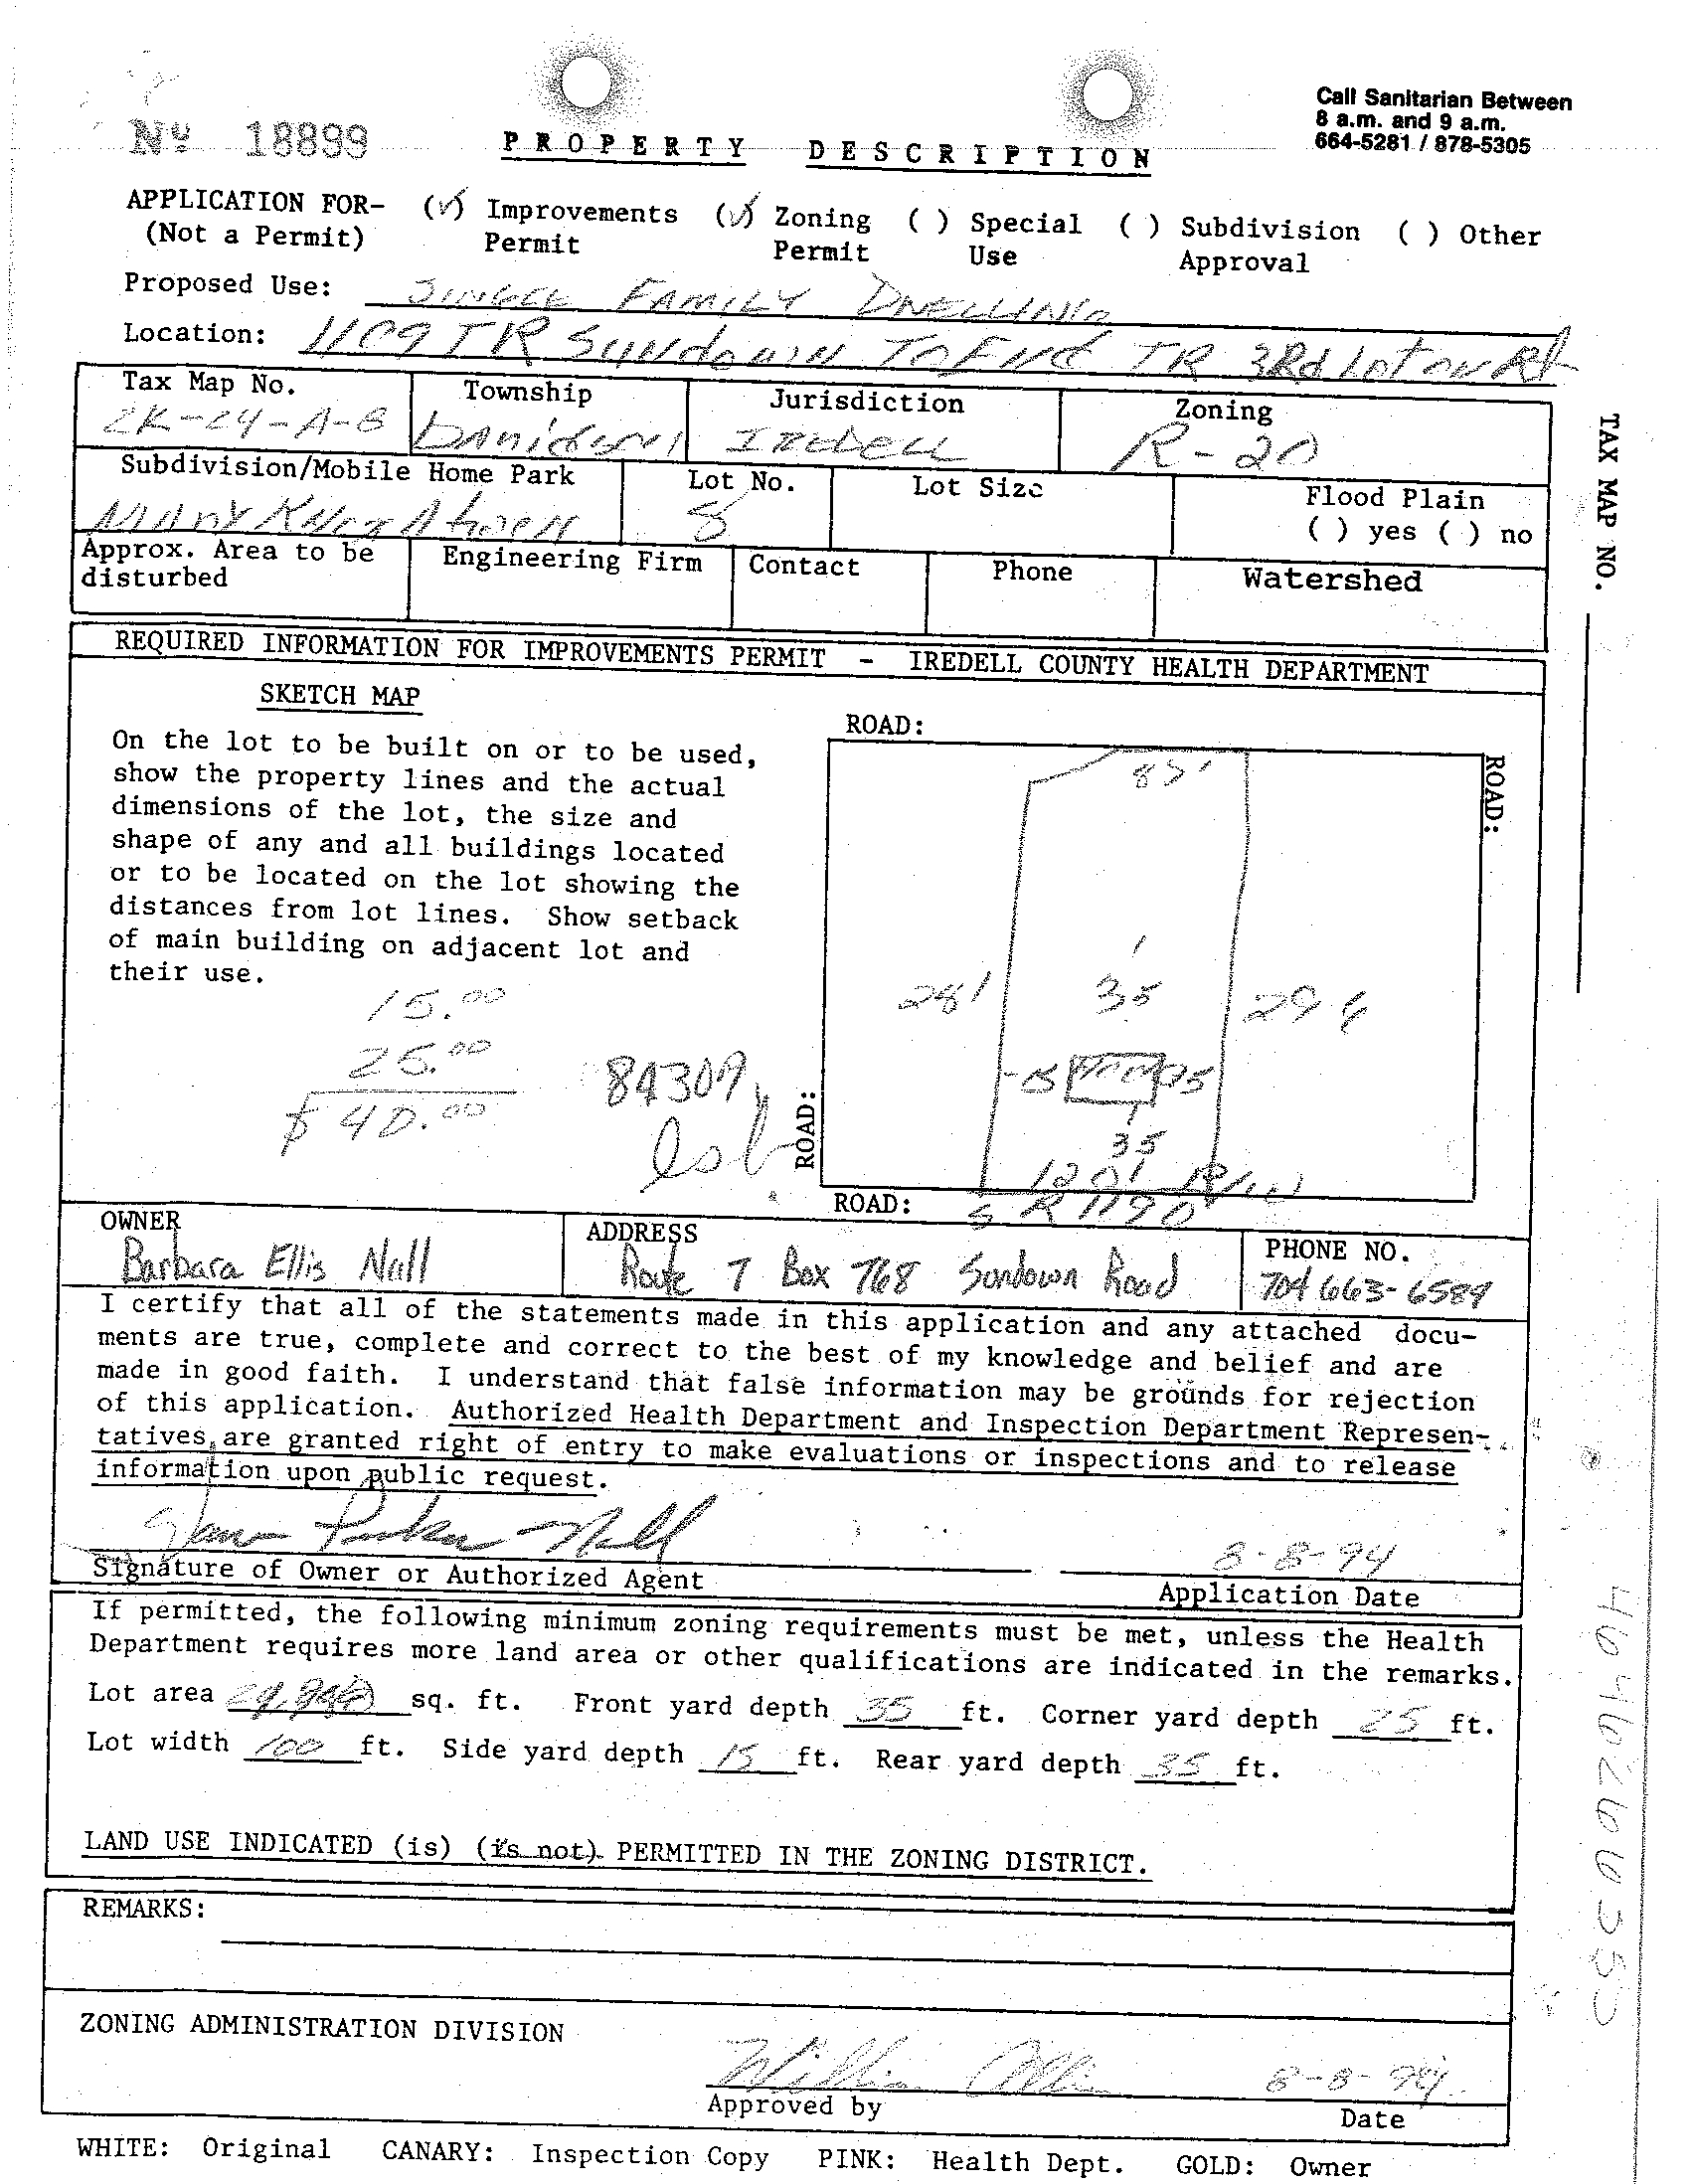 Call Sanitarian Between
8 a.m. and 9 a.m.
664-5281 / 878-5305
No 18899
PROPERTY DESCRIPTION
APPLICATION FOR- (✓) Improvements (✓) Zoning ( ) Special ( ) Subdivision ( ) Other
(Not a Permit) Permit Permit Use Approval
Proposed Use: SINGLE FAMILY DWELLING
Location: 1109 TR Sundown To End TR 3Rd Lot on Rt
Tax Map No. Township Jurisdiction Zoning
-A-8 IREDELL R-20
Subdivision/Mobile Home Park Lot No. Lot Size Flood Plain
8 ( ) yes ( ) no
Approx. Area to be Engineering Firm Contact Phone Watershed
disturbed
TAX MAP NO.
REQUIRED INFORMATION FOR IMPROVEMENTS PERMIT - IREDELL COUNTY HEALTH DEPARTMENT
SKETCH MAP
On the lot to be built on or to be used,
show the property lines and the actual
dimensions of the lot, the size and
shape of any and all buildings located
or to be located on the lot showing the
distances from lot lines. Show setback
of main building on adjacent lot and
their use.
15.00
25.00
$ 40.00
ROAD:
ROAD:
35
35
ROAD:
120' R/W
ROAD: SR 1190
OWNER ADDRESS PHONE NO.
Barbara Ellis Nall Route 7 Box 768 Sundown Road 704 663-6589
I certify that all of the statements made in this application and any attached docu-
ments are true, complete and correct to the best of my knowledge and belief and are
made in good faith. I understand that false information may be grounds for rejection
of this application. Authorized Health Department and Inspection Department Represen-
tatives are granted right of entry to make evaluations or inspections and to release
information upon public request.
Parker Nall 8-8-94
Signature of Owner or Authorized Agent Application Date
If permitted, the following minimum zoning requirements must be met, unless the Health
Department requires more land area or other qualifications are indicated in the remarks.
Lot area sq. ft. Front yard depth 35 ft. Corner yard depth 25 ft.
Lot width 100 ft. Side yard depth 15 ft. Rear yard depth 35 ft.
LAND USE INDICATED (is) (is not) PERMITTED IN THE ZONING DISTRICT.
REMARKS:
ZONING ADMINISTRATION DIVISION
William Allison 8-8-94
Approved by Date
WHITE: Original CANARY: Inspection Copy PINK: Health Dept. GOLD: Owner